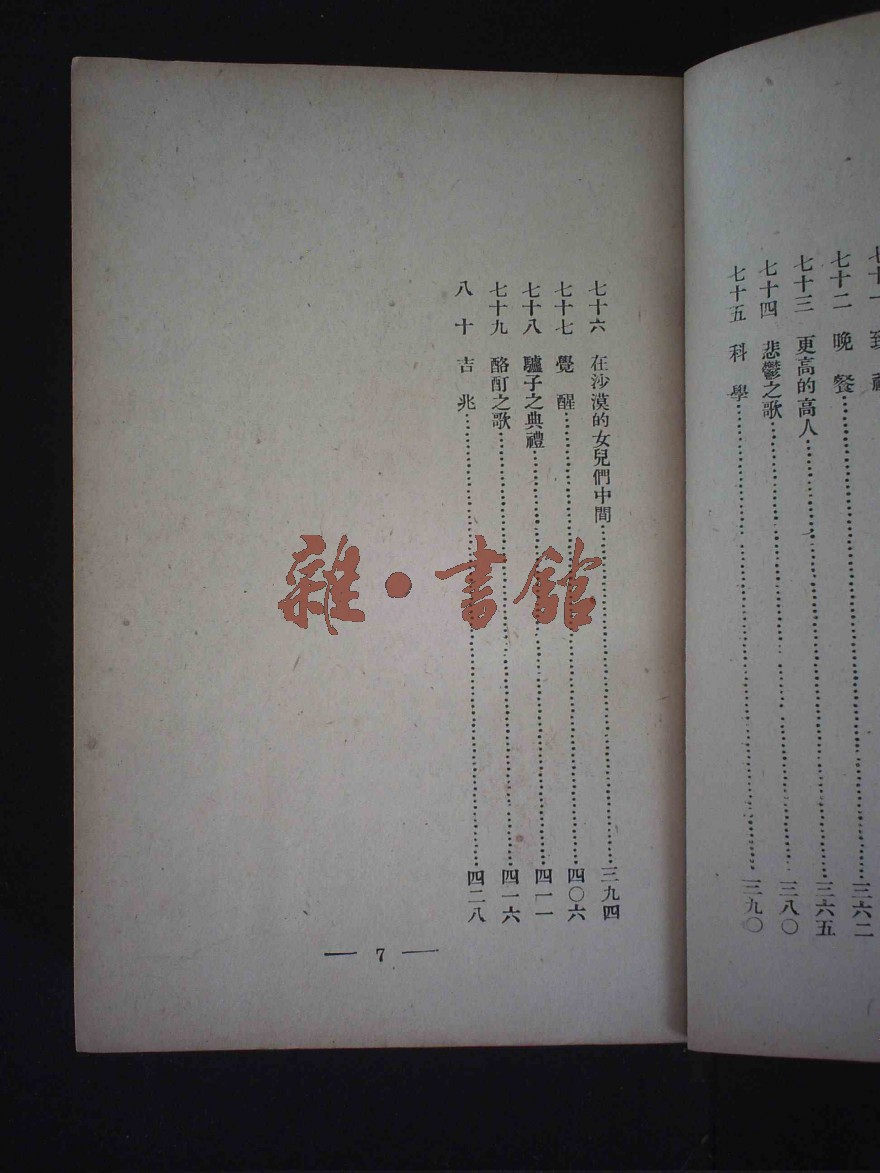 七十二　晚　餐……三六二
七十三　更高的高人……三六五
七十四　悲鬱之歌……三八〇
七十五　科　學……三九〇
七十六　在沙漠的女兒們中間……三九四
七十七　覺　醒……四〇六
七十八　驢子之典禮……四一一
七十九　酩酊之歌……四一六
八　十　吉　兆……四二八
— 7 —
雜·書館